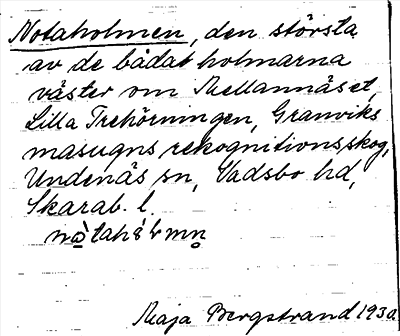 Notaholmen, den största
av de bådat holmarna
väster om Mellannäset,
Lilla Trehörningen, Granviks
masugns rekognitionsskog,
Undenäs sn, Vadsbo hd,
Skarab. l.
Maja Bergstrand 1930